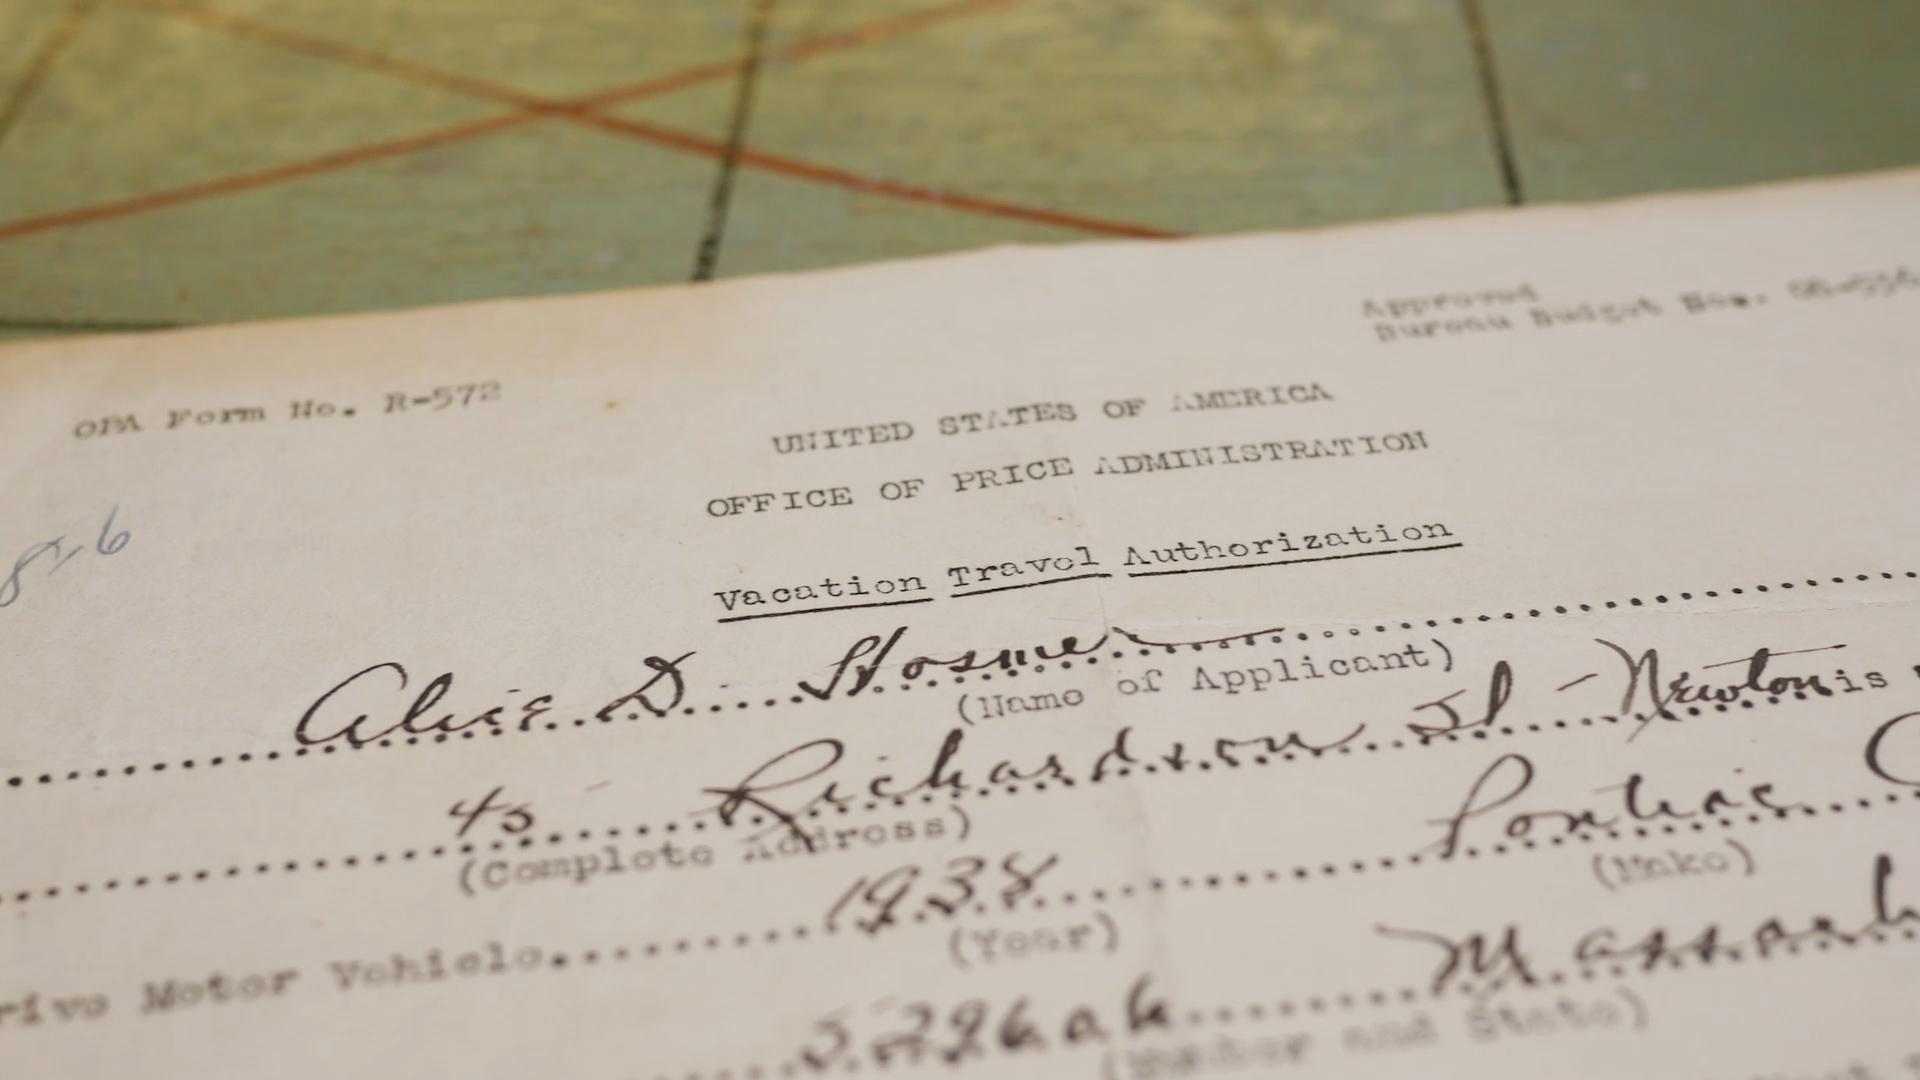 Approved
Bureau Budget Nos. 08-556
OPA Form No. R-572
UNITED STATES OF AMERICA
OFFICE OF PRICE ADMINISTRATION
8-6
Vacation Travel Authorization
Alice D. Hosmer
(Name of Applicant)
45 Richardson St - Newton is
(Complete Address)
rive Motor Vehicle 1938 Pontiac
(Year) (Make)
(Number and State)